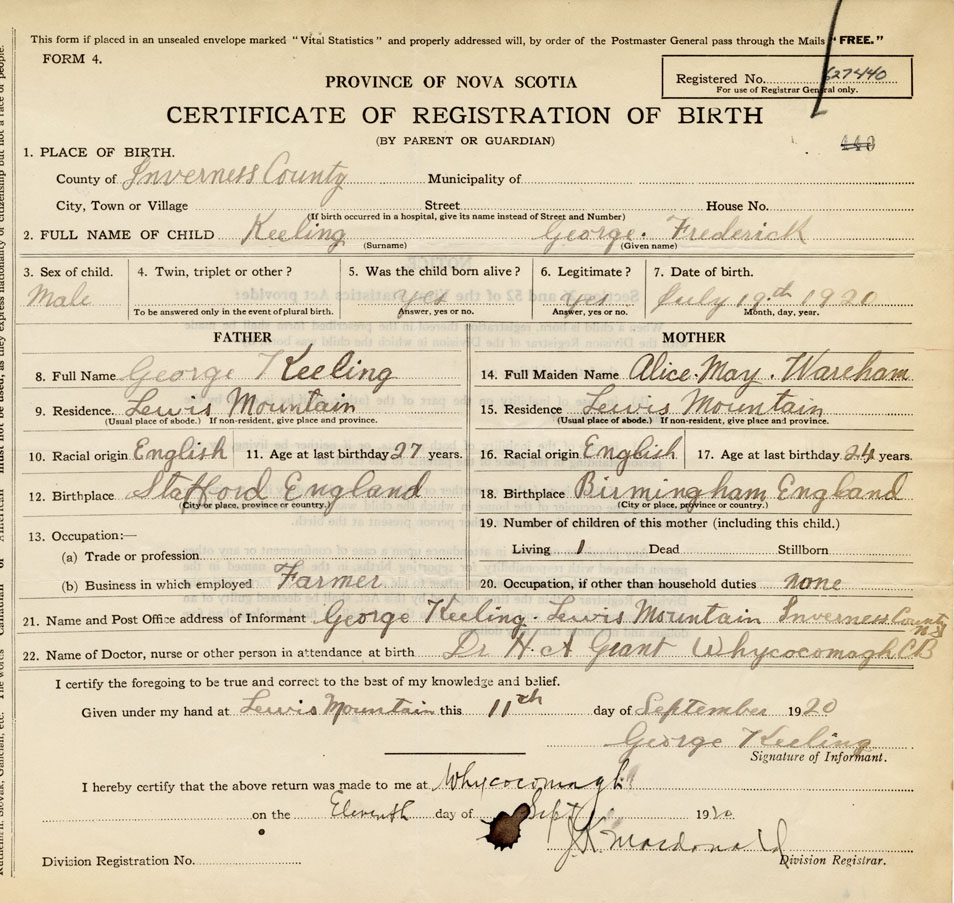 This form if placed in an unsealed envelope marked "Vital Statistics" and properly addressed will, by order of the Postmaster General pass through the Mails "FREE."
FORM 4.
Registered No. 627440
For use of Registrar General only.
PROVINCE OF NOVA SCOTIA
CERTIFICATE OF REGISTRATION OF BIRTH
(BY PARENT OR GUARDIAN)
1. PLACE OF BIRTH.
County of Inverness County Municipality of
City, Town or Village Street House No.
(If birth occurred in a hospital, give its name instead of Street and Number)
2. FULL NAME OF CHILD Keeling George. Frederick
(Surname) (Given name)
3. Sex of child. 4. Twin, triplet or other? 5. Was the child born alive? 6. Legitimate? 7. Date of birth.
Male yes yes July 19th 1920
To be answered only in the event of plural birth. Answer, yes or no. Answer, yes or no. Month, day, year.
FATHER MOTHER
8. Full Name George Keeling 14. Full Maiden Name Alice. May. Wareham
9. Residence. Lewis Mountain 15. Residence Lewis Mountain
(Usual place of abode.) If non-resident, give place and province. (Usual place of abode.) If non-resident, give place and province.
10. Racial origin English 11. Age at last birthday 27 years. 16. Racial origin English 17. Age at last birthday 24 years.
12. Birthplace Stafford England 18. Birthplace Birmingham England
(City or place, province or country.) (City or place, province or country.)
13. Occupation:— 19. Number of children of this mother (including this child.)
(a) Trade or profession Living 1 Dead Stillborn
(b) Business in which employed Farmer 20. Occupation, if other than household duties none
21. Name and Post Office address of Informant George Keeling. Lewis Mountain Inverness County N.S
22. Name of Doctor, nurse or other person in attendance at birth Dr H. A Grant Whycocomagh CB
I certify the foregoing to be true and correct to the best of my knowledge and belief.
Given under my hand at Lewis Mountain this 11th day of September 1920
George Keeling
Signature of Informant.
I hereby certify that the above return was made to me at Whycocomagh
on the Eleventh day of Sept 1920
J K Macdonald
Division Registration No. Division Registrar.